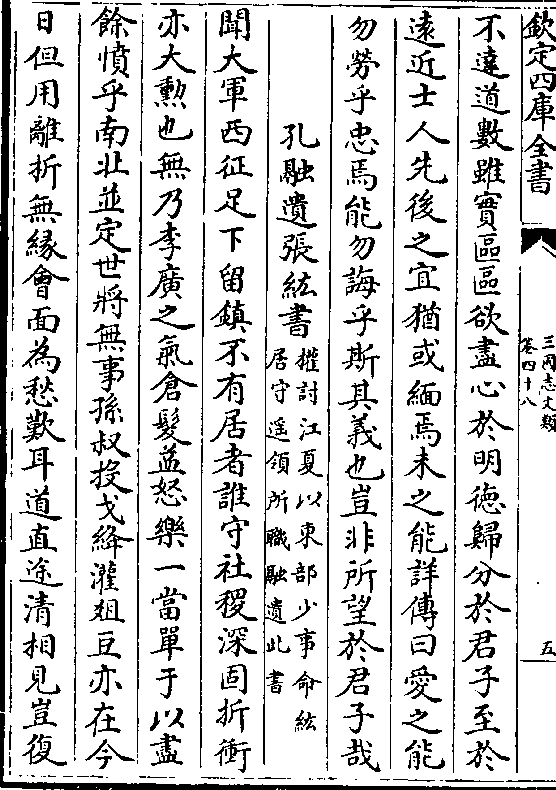 欽定四庫全書
三國志文類
卷四十八
五
不達道數雖實區區欲盡心於明徳歸分於君子至於
遠近士人先後之宜猶或緬焉未之能詳傳曰愛之能
勿勞乎忠焉能勿誨乎斯其義也豈非所望於君子哉
孔融遺張紘書
權討江夏以東部少事命紘
居守遥領所職融遺此書
聞大軍西征足下留鎮不有居者誰守社稷深固折衝
亦大勲也無乃李廣之氣倉髮益怒樂一當單于以盡
餘憤乎南北並定世將無事孫叔投戈絳灌俎豆亦在今
日但用離析無縁會面為愁歎耳道直途清相見豈復